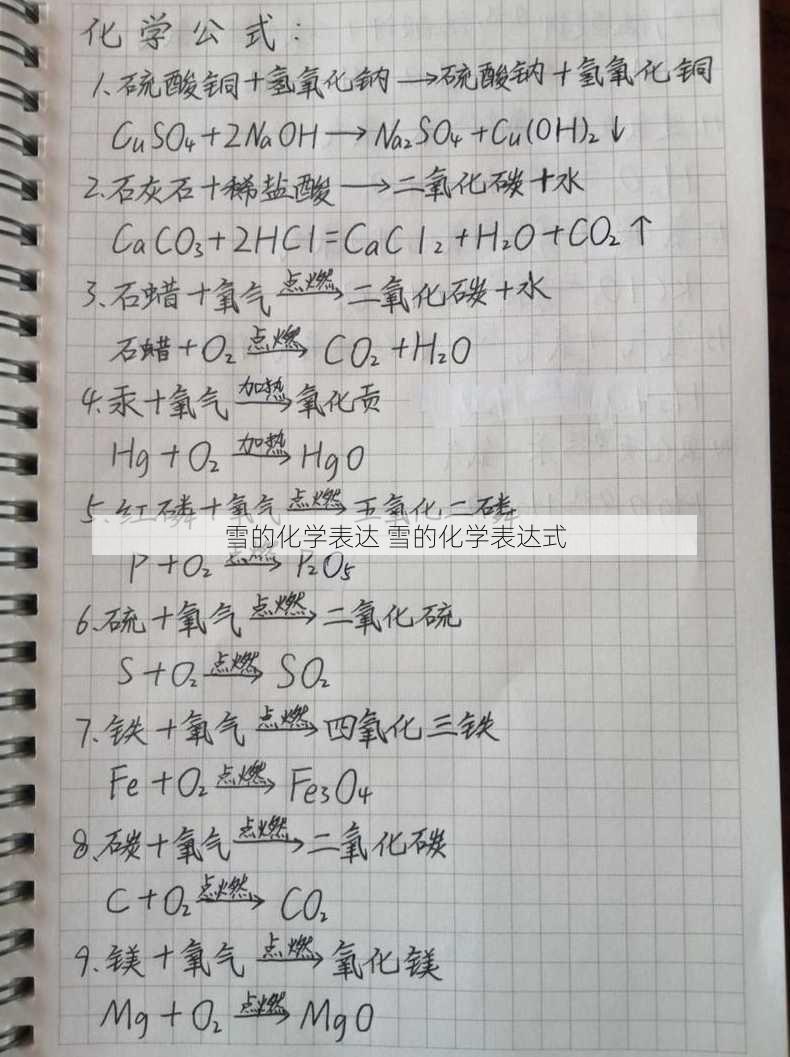 化学公式:
1、硫酸铜+氢氧化钠→硫酸钠+氢氧化铜
CuSO₄+2NaOH→Na₂SO₄+Cu(OH)₂↓
2、石灰石+稀盐酸→二氧化碳+水
CaCO₃+2HCl=CaCl₂+H₂O+CO₂↑
3、石蜡+氧气 点燃→ 二氧化碳+水
石蜡+O₂ 点燃→ CO₂+H₂O
4、汞+氧气 加热→ 氧化贡
Hg+O₂ 加热→ HgO
5、红磷+氧气 点燃→ 五氧化二磷
雪的化学表达 雪的化学表达式
P+O₂ 点燃→ P₂O₅
6、硫+氧气 点燃→ 二氧化硫
S+O₂ 点燃→ SO₂
7、铁+氧气 点燃→ 四氧化三铁
Fe+O₂ 点燃→ Fe₃O₄
8、碳+氧气 点燃→ 二氧化碳
C+O₂ 点燃→ CO₂
9、镁+氧气 点燃→ 氧化镁
Mg+O₂ 点燃→ MgO